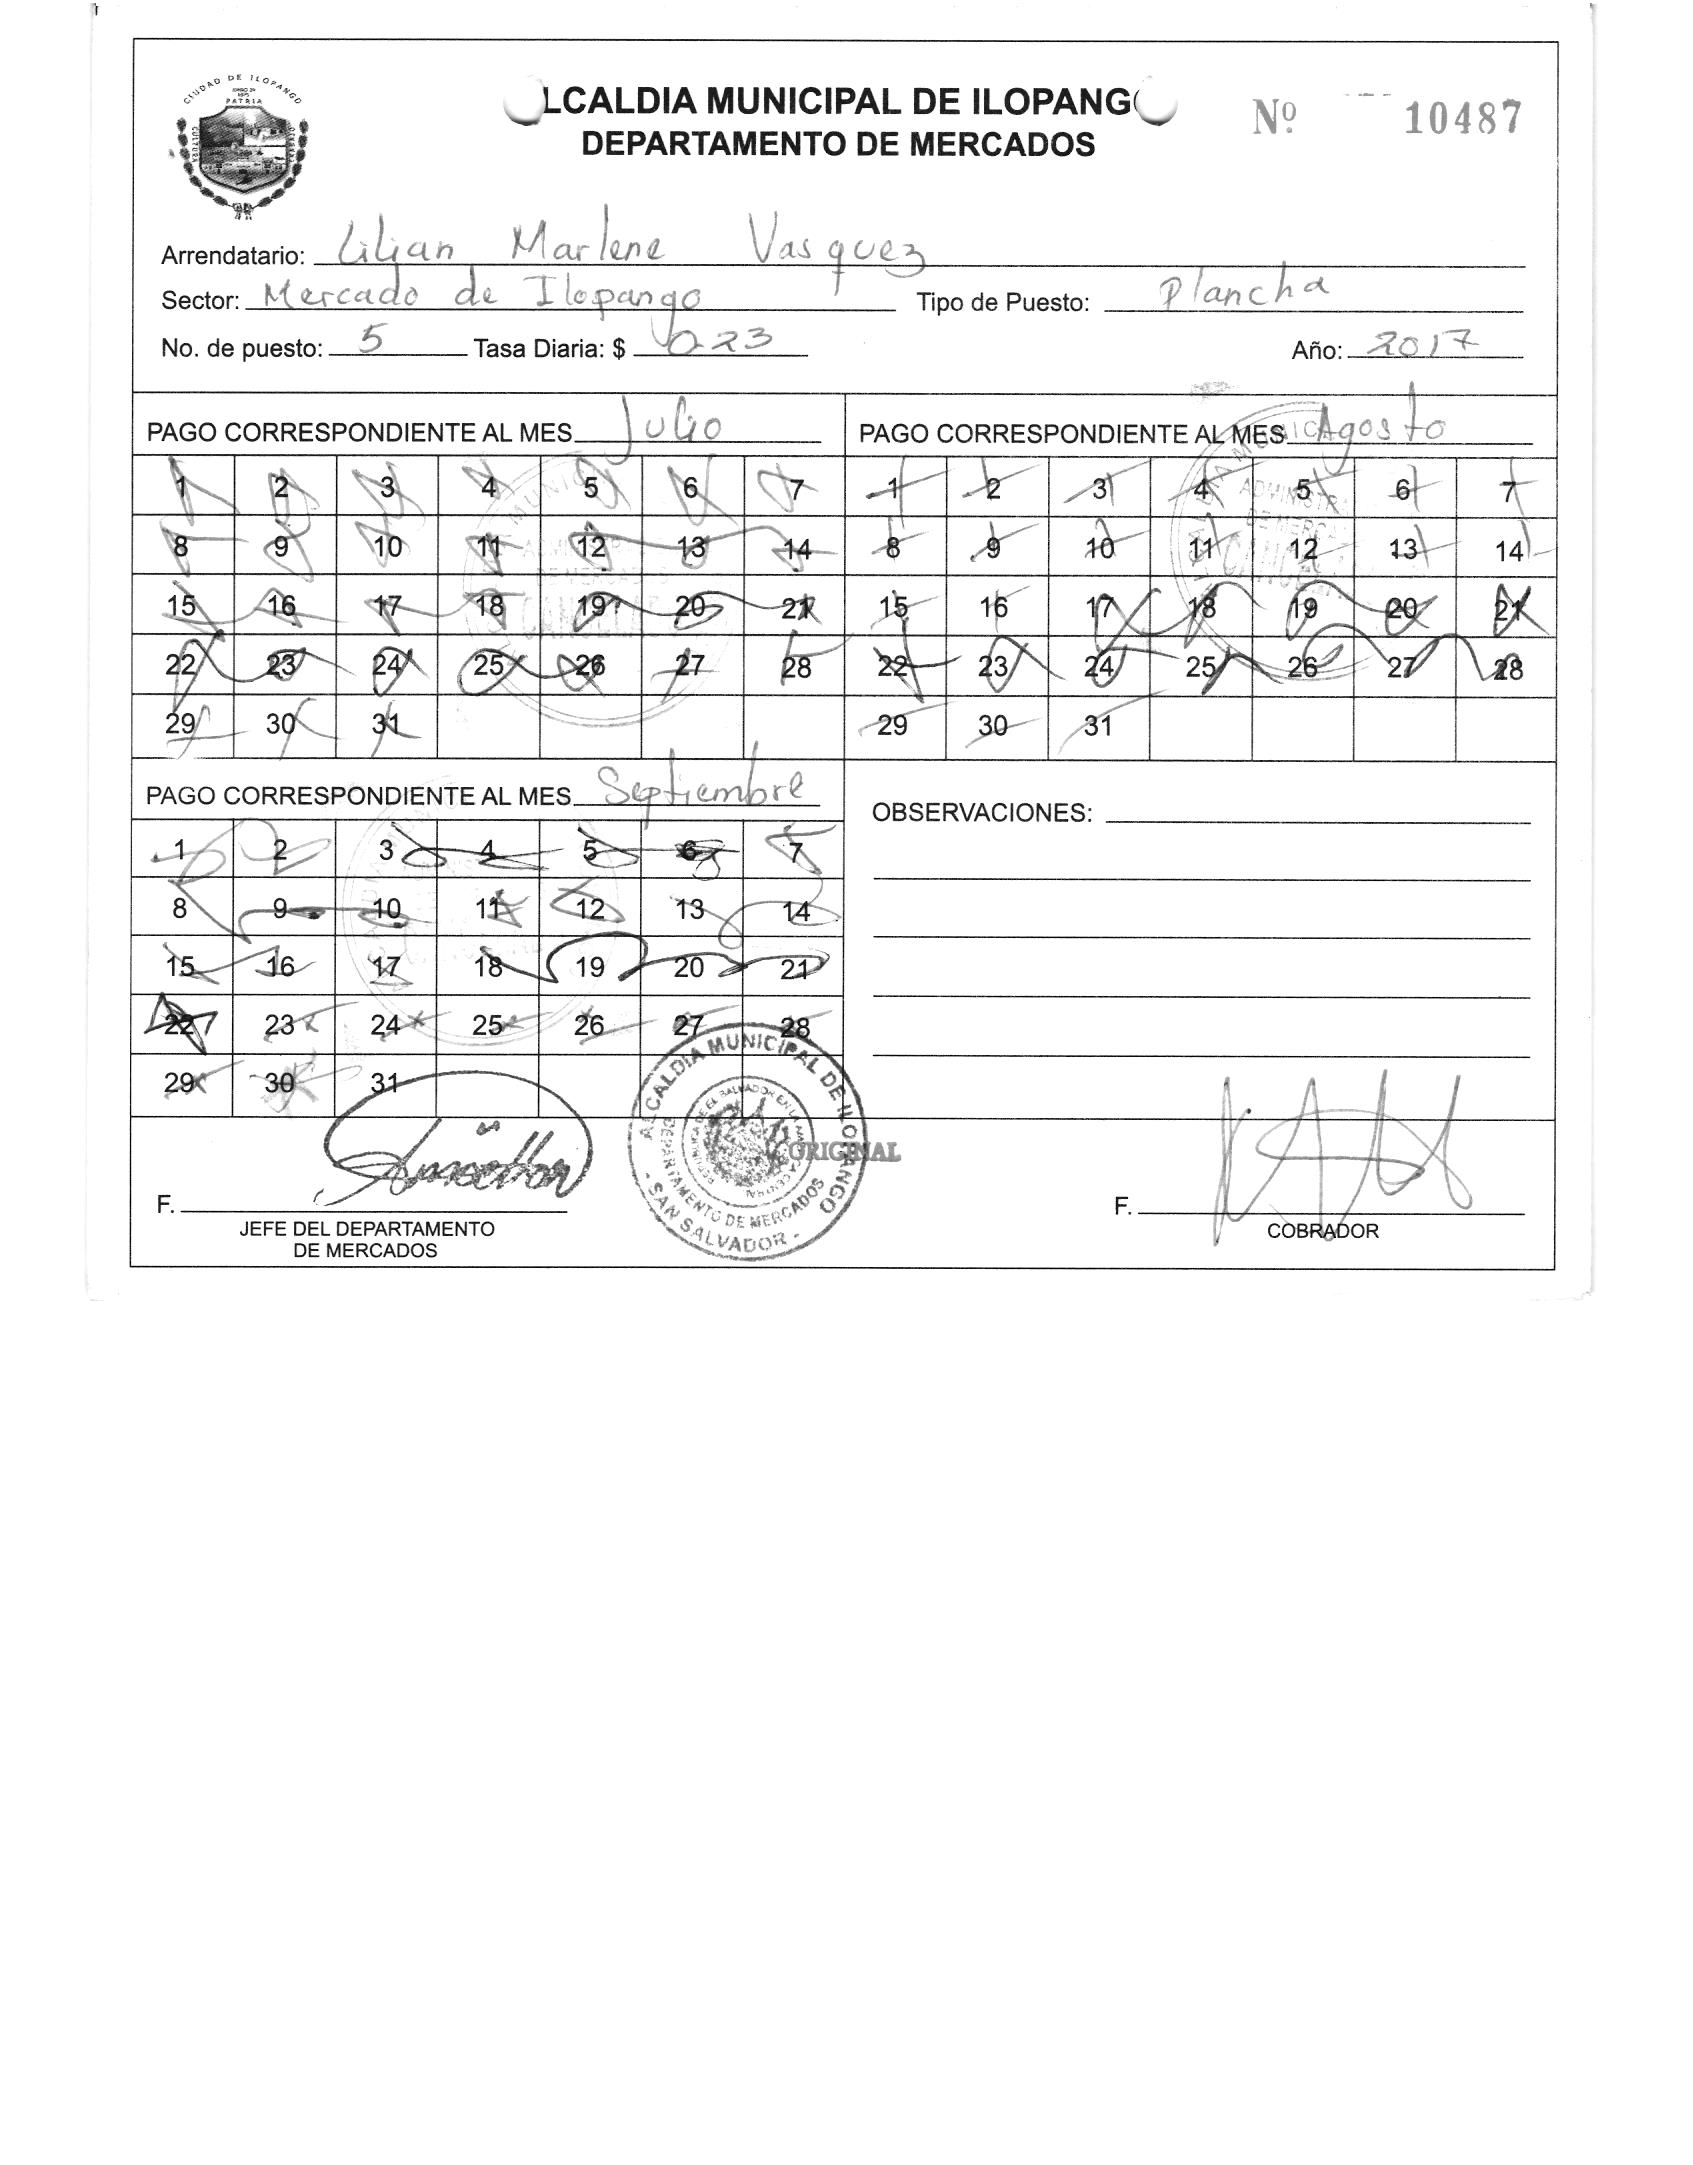 CIUDAD DE ILOPANGO
PATRIA
CULTURA
LCALDIA MUNICIPAL DE ILOPANG
DEPARTAMENTO DE MERCADOS
Nº 10487
Arrendatario: Lilian Marlene Vasquez
Sector: Mercado de Ilopango Tipo de Puesto: Plancha
No. de puesto: 5 Tasa Diaria: $ 0.23 Año: 2017
PAGO CORRESPONDIENTE AL MES Julio
1 2 3 4 5 6 7
8 9 10 11 12 13 14
15 16 17 18 19 20 21
22 23 24 25 26 27 28
29 30 31
PAGO CORRESPONDIENTE AL MES Agosto
1 2 3 4 5 6 7
8 9 10 11 12 13 14
15 16 17 18 19 20 21
22 23 24 25 26 27 28
29 30 31
PAGO CORRESPONDIENTE AL MES Septiembre
1 2 3 4 5 6 7
8 9 10 11 12 13 14
15 16 17 18 19 20 21
22 23 24 25 26 27 28
29 30 31
OBSERVACIONES:
ALCALDIA MUNICIPAL DE ILOPANGO
DEPARTAMENTO DE MERCADOS
- SAN SALVADOR -
ORIGINAL
F.
JEFE DEL DEPARTAMENTO
DE MERCADOS
F.
COBRADOR